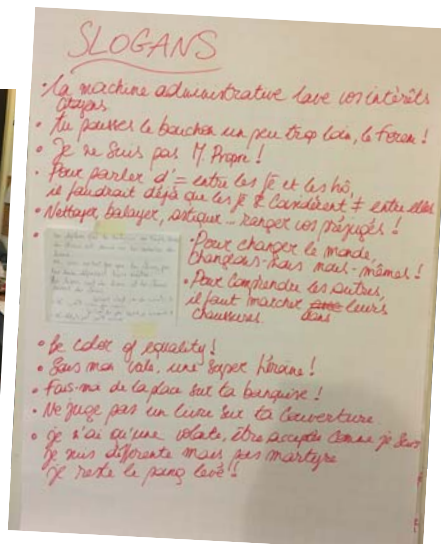 SLOGANS
• La machine administrative lave vos intérêts
citoyens
• Tu pousses le bouchon un peu trop loin, le Forem !
• Je ne suis pas M. Propre !
• Pour parler d'= entre les fê et les hô,
il faudrait déjà que les fê se considèrent ≠ entre elles
• Nettoyer, balayer, astiquer ... ranger vos préjugés !
• Pour changer le monde,
changeons-nous nous-mêmes !
• Pour comprendre les autres,
il faut marcher dans leurs
chaussures.
• Le color of equality !
• Sous mon voile, une super héroïne !
• Fais-moi de la place sur ta banquise !
• Ne juge pas un livre sur ta couverture
• Je n'ai qu'une volonté, être acceptée comme je suis
Je suis différente mais pas martyre
Je reste le poing levé !